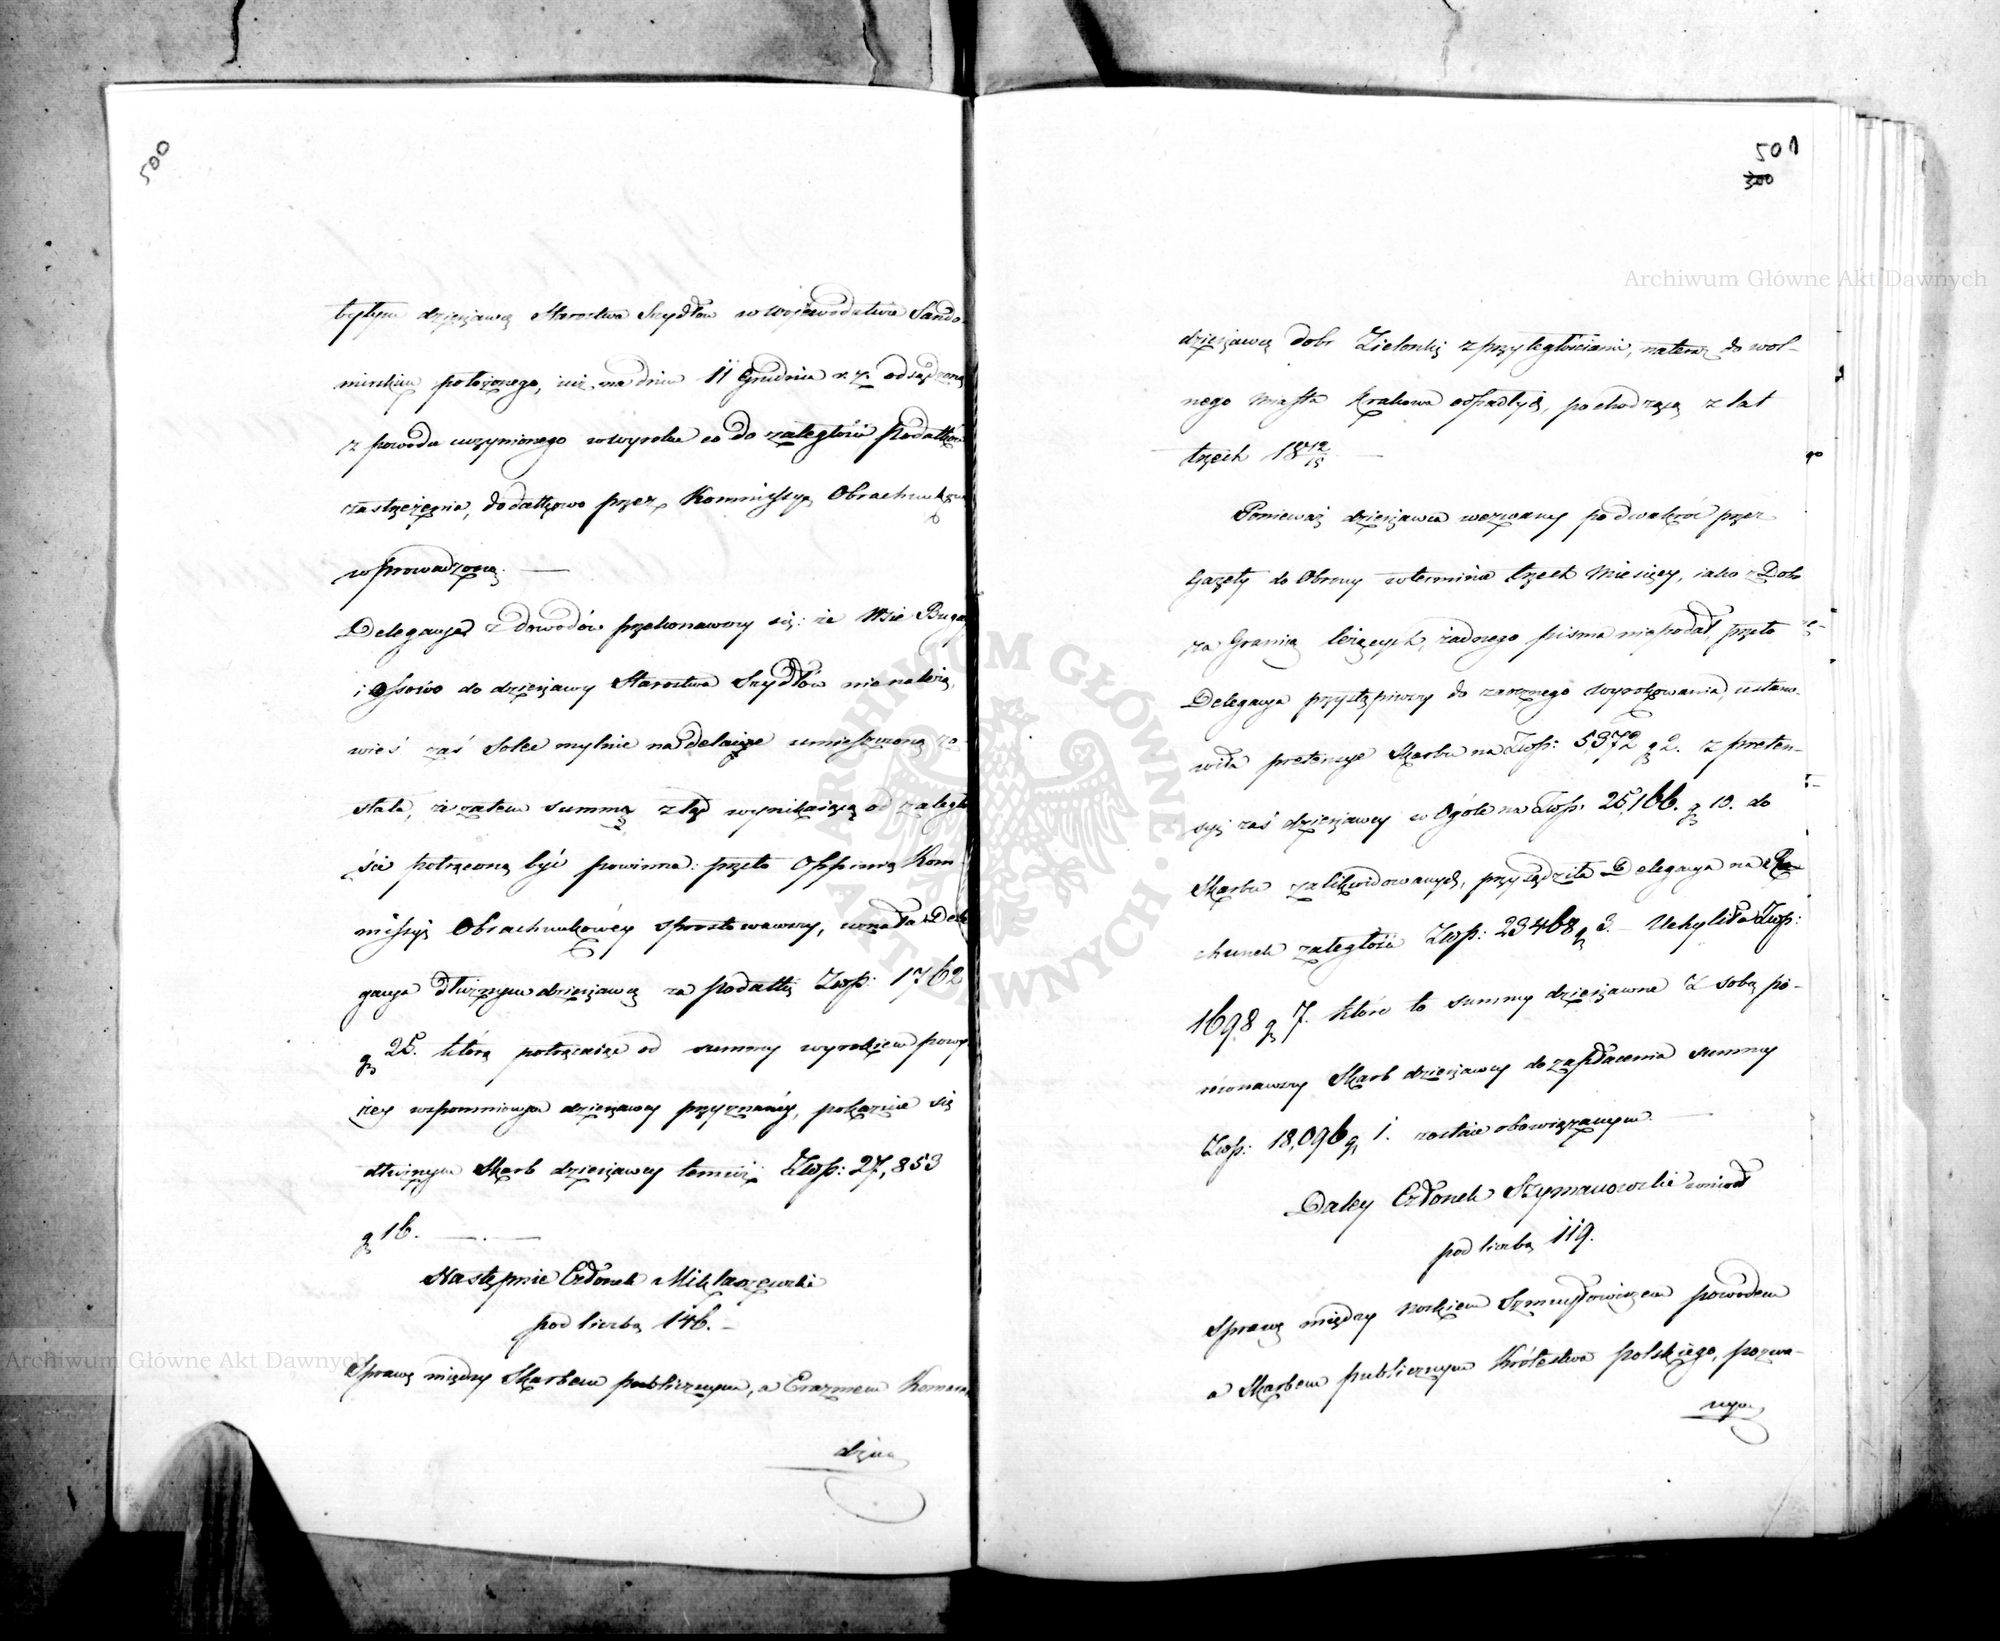 500
byłym dzierżawcą Starostwa Szydłow w Wojewodztwie Sando-
mirskim położonego, iuż na dniu 11 Grudnia r. z. odsądzoną
z powodu uczynionego w wyroku co do zaległości Podatków
zastrzeżenia, dodatkowo przez Kommissyą Obrachunkową
wprowadzoną. —
Delegacya z dowodów przekonawszy się: że Wsie Bugay
i Ossowo do dzierżawy Starostwa Szydłów nienależą,
wieś zaś Solec mylnie na delacyze umieszczoną zo-
stała, że zatem summa ztąd wynikaiąca od zaległo
ści potrąconą być powinna: przeto Oppinią Kom-
missyi Obrachunkowéy sprostowawszy, uznała Dele
gacya dłużnym dzierżawcę za podatki Złp: 1762
gr 25. którą potrącaiąc od summy wyrokiem powy
żey wspomnionym dzierżawcy przyznanéy, pokazuie się
dłużnym Skarb dzierżawcy temuż Złp: 27,853
gr 16. — . —
Następnie Członek Miklaszewski
pod liczbą 146. —
Sprawę między Skarbem publicznym, a Erazmem Komara
dzierz
501
300
Archiwum Główne Akt Dawnych
dzierżawcą dobr Zielonki z przyległościami, nateraz do wol-
nego Miasta Krakowa odpadłych, pochodzącą z lat
trzech 18 12/15 —
Ponieważ dzierżawca wezwany po dwakroć przez
Gazety do Obrony w terminie trzech Miesięcy, iako z Dobr
za Granicą leżących, żadnego pisma niepodał, przeto
Delegacya przystąpiwszy do zaocznego wyrokowania, ustano-
wiła pretensye Skarbu na Złp: 5372 gr 2. z preten-
syi zaś dzierżawcy w Ogóle na Złp: 25,166. gr 10. do
Skarbu zalikwidowanych, przysądziła Delegacya na Ra
chunek zaległości Złp: 23468 gr 3. — Uchyliła Złp:
1698 gr 7. które to summy dzierżawne z sobą po-
równawszy Skarb dzierżawcy do zapłacenia summy
Złp: 18,096 gr 1. zostaie obowiązanym. —
Daley Członek Szymanowski wniosł
pod liczbą 119.
Sprawę między Moszkiem Szmulowiczem powodem
a Skarbem publicznym Królestwa Polskiego, pozwa-
nym
Archiwum Główne Akt Dawnych
ARCHIWUM GŁÓWNE AKT DAWNYCH